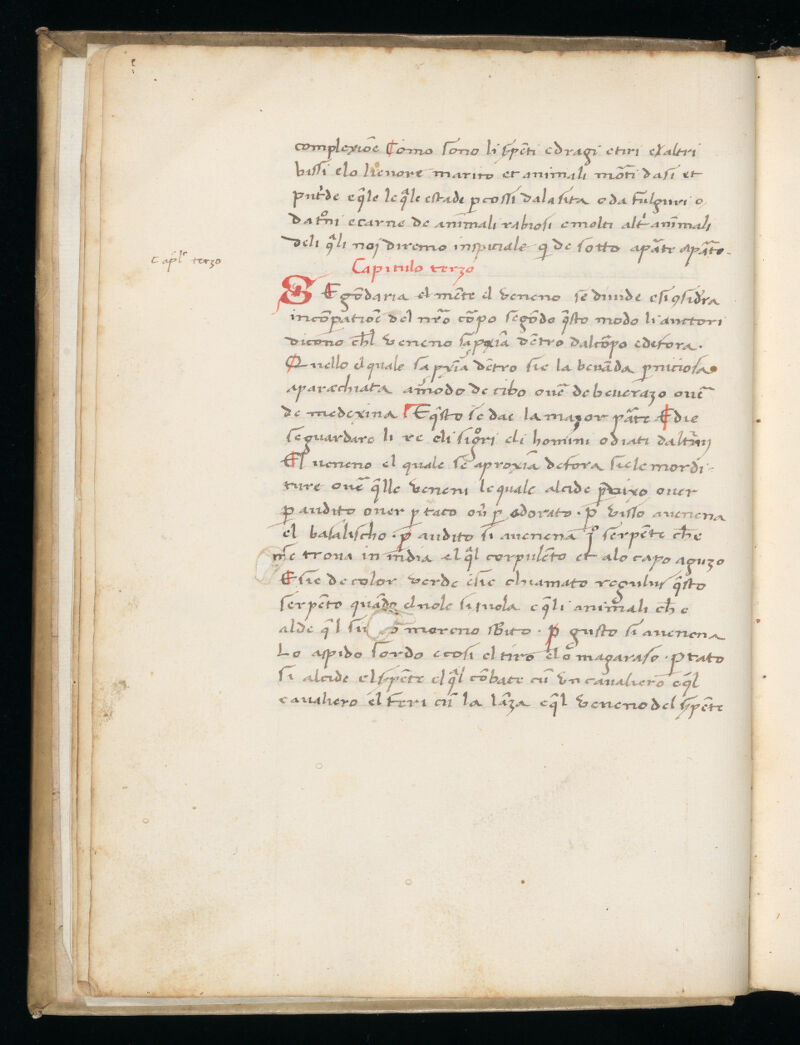 complexiōe Como sono li sp̄eti e dragi e tiri et altri
bissi e lo lievore marito et animali mōti da si et
put̄de e q̄le le q̄le estade p̄cossi dala sita o da fulguri o
da t̄oni e carne de animali rabiosi e molti alt̄ animali
deli q̄li noj diremo in spiciale q̄ de sotto apāte apāte.
Capl̄o terzo
Capitulo terzo
SEgōdaria el mēte el veneno se divide e si ɔsid̄ra
in cōpatiōe del nr̄o cōpo segōdo q̄sto modo li auctori
dicono chl̄ veneno sa pxīa dētro dal cōpo e de fora.
Quello el quale sa pxīa dētro sie la bevāda p̄niciosa
aparechiata a modo de cibo ouē de beverazo ouē
de medexina E q̄sto se dae la mazor pāte E die
se guardare li re e li sigōri e li homini odiati d altrui
El veneno el quale se aproxīa de fora sie le mordi-
ture ouē q̄lle veneni le quale alcide p̄ vixo over
p̄ audito over p̄ taco ou̅ p̄ odorato. p̄ visso avenena
el basalischo. p̄ audito si avenena i̅o serpēte ch̄e
me trova in india el q̄l corpulēto et a lo capo aguzo
E sie de color verde e sie chiamato regulus q̄sto
serpēto quādo el vole si vola e q̄li animali ch̄e
alde q̄l su o moreno sbito. p̄ gusto si avenena
Lo aspido sordo e cosi el tiro e lo magaraso. p̄ tato
si alcide el sp̄ete el q̄l cōbate cū vn cavaliero e q̄l
cavaliero el feri cū la lāza e q̄l veneno del sp̄ete